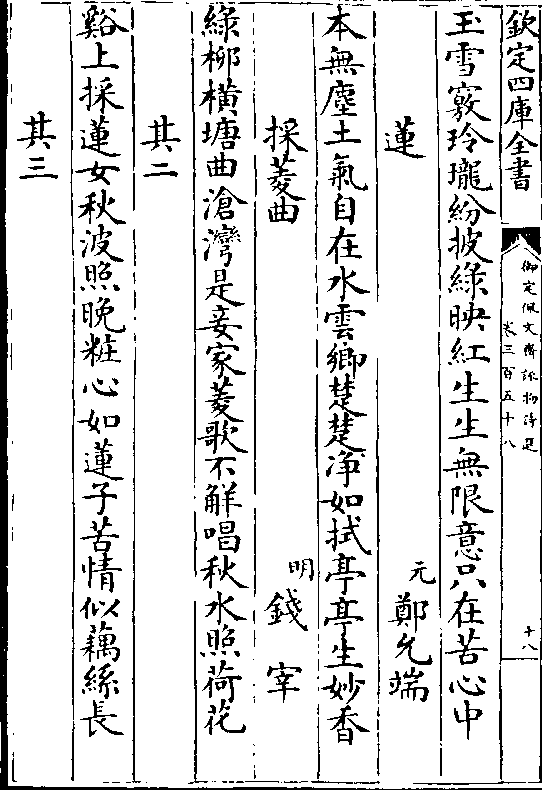 欽定四庫全書
御定佩文齋詠物詩選
卷三百五十八
十八
玉雪竅玲瓏紛披綠映紅生生無限意只在苦心中
蓮 元 鄭允端
本無塵土氣自在水雲鄉楚楚淨如拭亭亭生妙香
採菱曲 明 錢宰
綠柳橫塘曲滄灣是妾家菱歌不解唱秋水照荷花
其二
谿上採蓮女秋波照晚粧心如蓮子苦情似藕絲長
其三